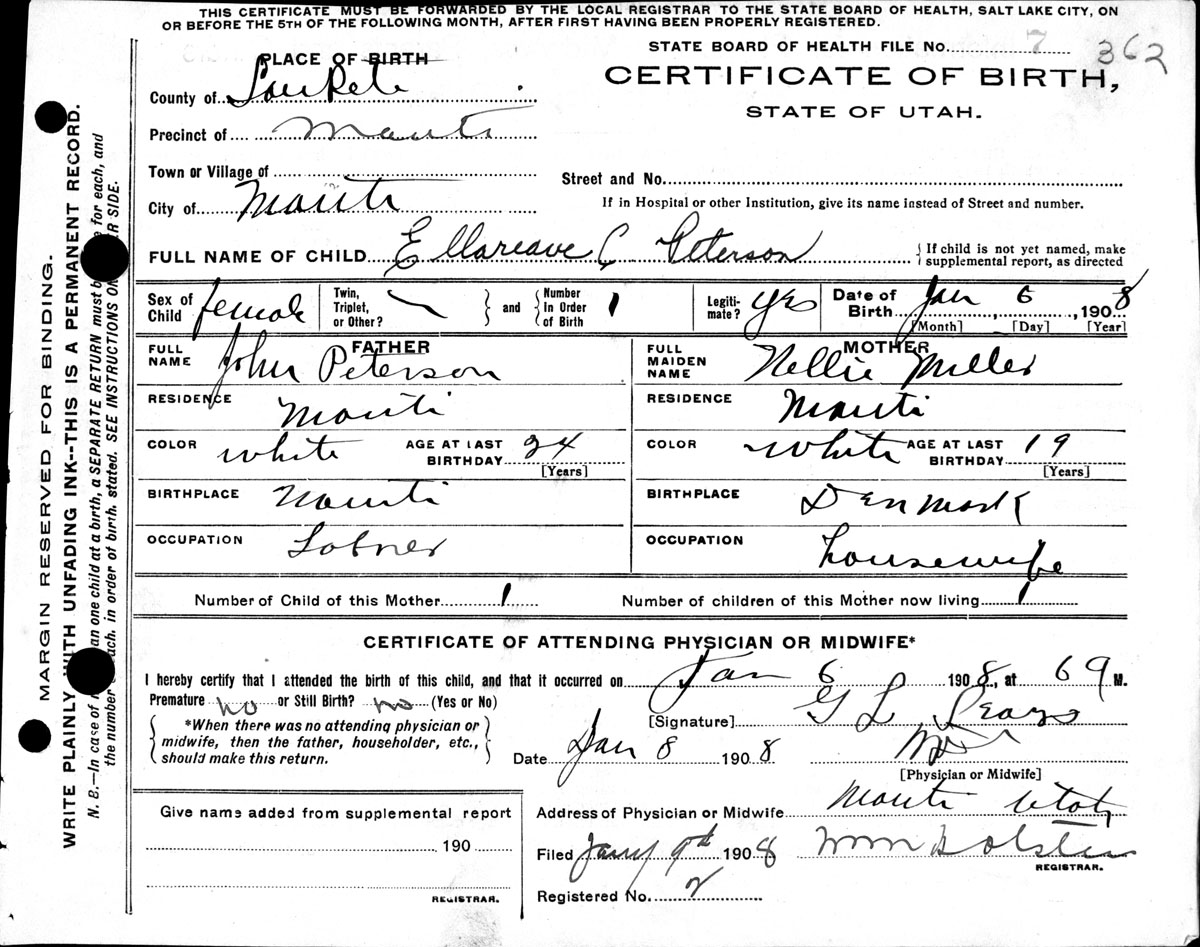 THIS CERTIFICATE MUST BE FORWARDED BY THE LOCAL REGISTRAR TO THE STATE BOARD OF HEALTH, SALT LAKE CITY, ON
OR BEFORE THE 5TH OF THE FOLLOWING MONTH, AFTER FIRST HAVING BEEN PROPERLY REGISTERED.
MARGIN RESERVED FOR BINDING.
WRITE PLAINLY WITH UNFADING INK--THIS IS A PERMANENT RECORD.
N. B.—In case of an one child at a birth, a SEPARATE RETURN must be for each, and
the number each, in order of birth, stated. SEE INSTRUCTIONS ON SIDE.
STATE BOARD OF HEALTH FILE No. 7 362
CERTIFICATE OF BIRTH,
STATE OF UTAH.
PLACE OF BIRTH
County of SanPete
Precinct of Manti
Town or Village of
City of Manti
Street and No.
If in Hospital or other Institution, give its name instead of Street and number.
FULL NAME OF CHILD C Peterson
If child is not yet named, make
supplemental report, as directed
Sex of Child female
Twin, Triplet, or Other?
and
Number In Order of Birth 1
Legiti- mate? yes
Date of Birth Jan 6, 1908
[Month] [Day] [Year]
FATHER
FULL NAME John Peterson
RESIDENCE Manti
COLOR white AGE AT LAST BIRTHDAY 24
[Years]
BIRTHPLACE Manti
OCCUPATION
MOTHER
FULL MAIDEN NAME Nellie Miller
RESIDENCE Manti
COLOR White AGE AT LAST BIRTHDAY 19
[Years]
BIRTHPLACE Denmark
OCCUPATION housewife
Number of Child of this Mother 1 Number of children of this Mother now living 1
CERTIFICATE OF ATTENDING PHYSICIAN OR MIDWIFE*
I hereby certify that I attended the birth of this child, and that it occurred on Jan 6 1908, at 6 M.
Premature no or Still Birth? no (Yes or No)
*When there was no attending physician or
midwife, then the father, householder, etc.,
should make this return.
[Signature] G L
Date Jan 8 1908
[Physician or Midwife]
Address of Physician or Midwife Manti Utah
Give name added from supplemental report
190
REGISTRAR.
Filed Jany 9th 1908 Wm
REGISTRAR.
Registered No. 2